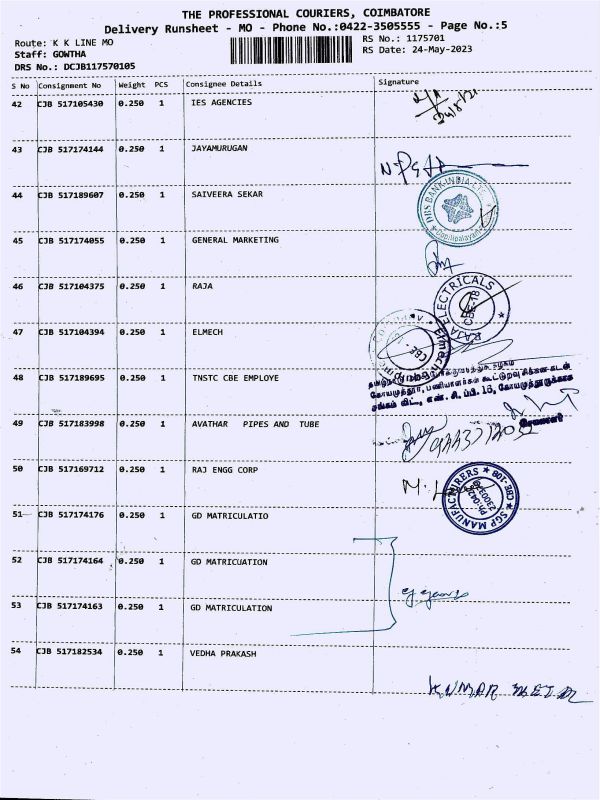 THE PROFESSIONAL COURIERS, COIMBATORE
Delivery Runsheet - MO - Phone No.:0422-3505555 - Page No.:5
Route: K K LINE MO
RS No.: 1175701
Staff: GOWTHA
RS Date: 24-May-2023
DRS No.: DCJB117570105
S No Consignment No Weight PCS Consignee Details Signature
42 CJB 517105430 0.250 1 IES AGENCIES
43 CJB 517174144 0.250 1 JAYAMURUGAN
44 CJB 517189607 0.250 1 SAIVEERA SEKAR
DBS BANK INDIA LTD
45 CJB 517174055 0.250 1 GENERAL MARKETING
46 CJB 517104375 0.250 1 RAJA
RAJA ELECTRICALS
CBE-18
47 CJB 517104394 0.250 1 ELMECH
48 CJB 517189695 0.250 1 TNSTC CBE EMPLOYE
49 CJB 517183998 0.250 1 AVATHAR PIPES AND TUBE
50 CJB 517169712 0.250 1 RAJ ENGG CORP
SGP MANUFACTURERS CBE-108
51 CJB 517174176 0.250 1 GD MATRICULATIO
52 CJB 517174164 0.250 1 GD MATRICUATION
53 CJB 517174163 0.250 1 GD MATRICULATION
54 CJB 517182534 0.250 1 VEDHA PRAKASH